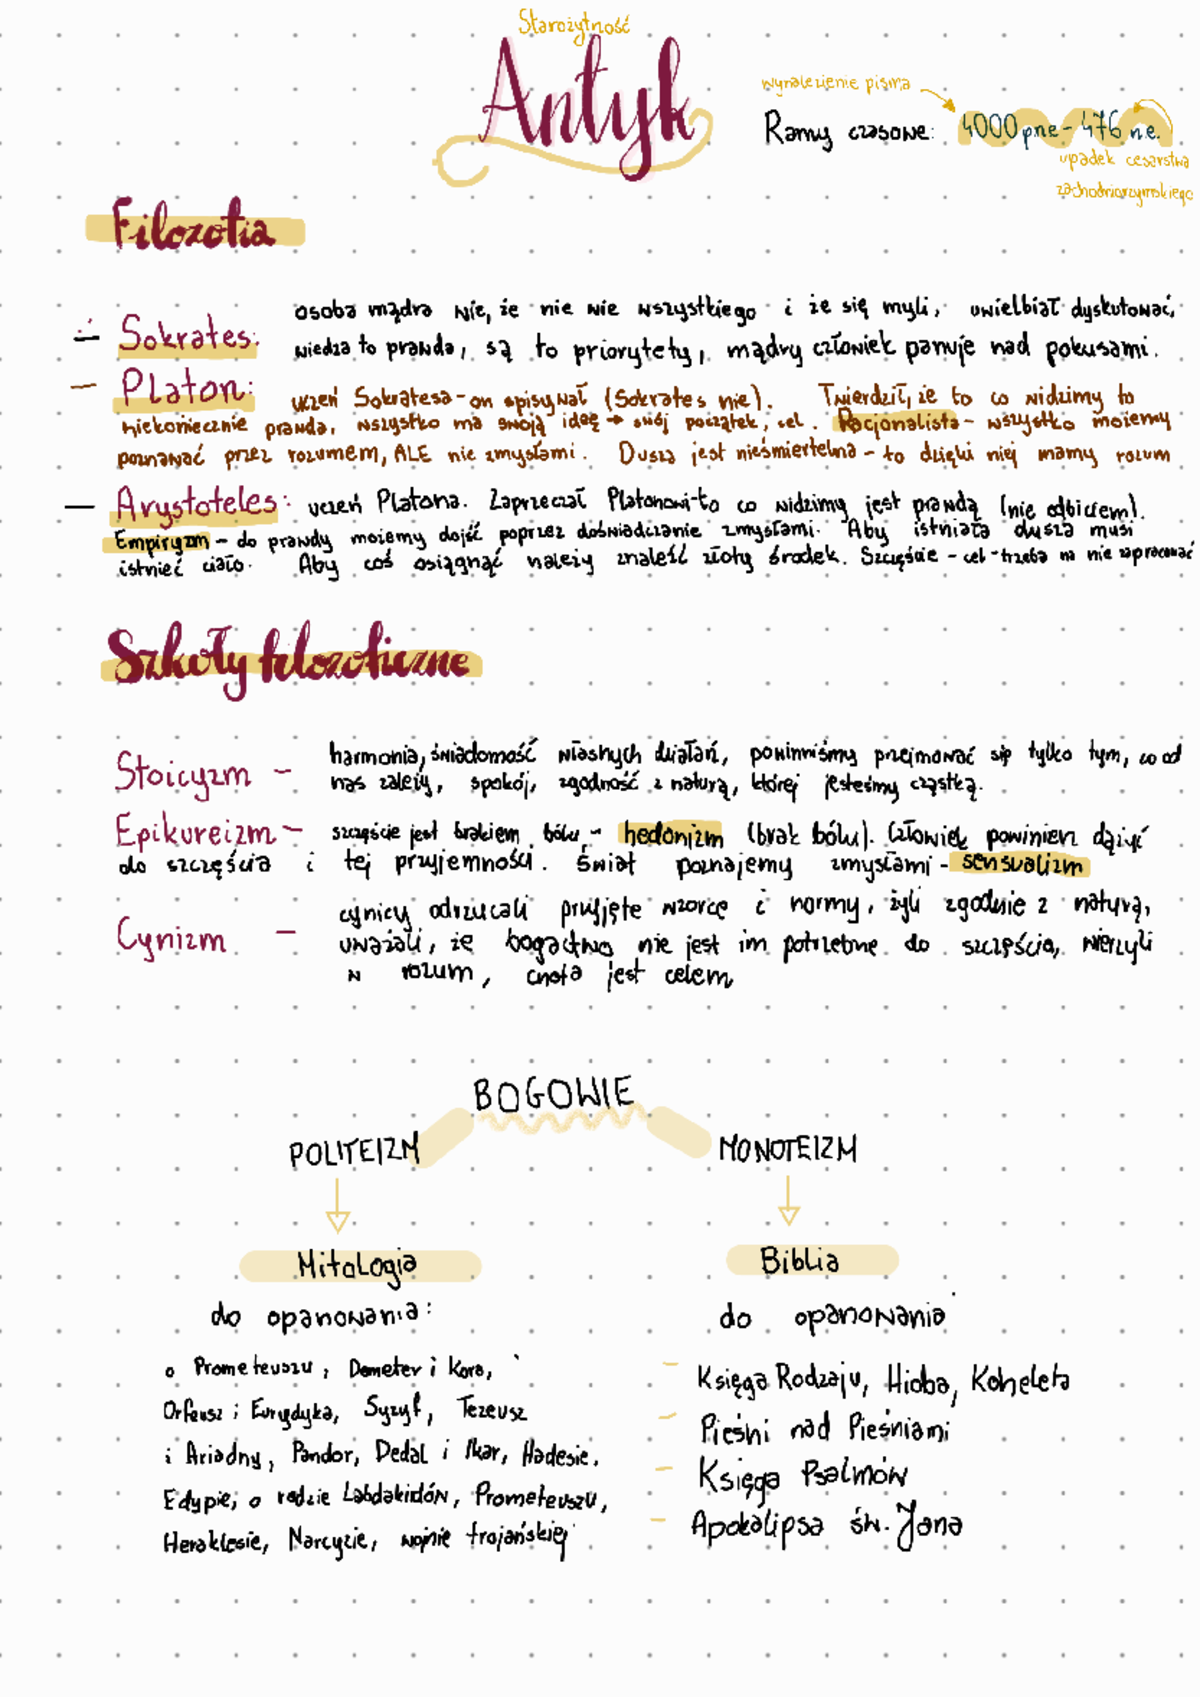 Starożytność
Antyk
wynalezienie pisma
Ramy czasowe: 4000 pne - 476 n.e.
upadek cesarstwa
zachodniorzymskiego
Filozofia
- Sokrates: osoba mądra wie, że nie wie wszystkiego i że się myli, uwielbiał dyskutować,
wiedza to prawda, są to priorytety, mądry człowiek panuje nad pokusami.
- Platon: uczeń Sokratesa - on spisywał (Sokrates nie). Twierdził, że to co widzimy to
niekoniecznie prawda, wszystko ma swoją ideę → swój początek, cel. Racjonalista - wszystko możemy
poznawać przez rozumem, ALE nie zmysłami. Dusza jest nieśmiertelna - to dzięki niej mamy rozum
- Arystoteles: uczeń Platona. Zaprzeczał Platonowi - to co widzimy jest prawdą (nie odbiciem).
Empiryzm - do prawdy możemy dojść poprzez doświadczanie zmysłami. Aby istniała dusza musi
istnieć ciało. Aby coś osiągnąć należy znaleść złoty środek. Szczęście - cel - trzeba na nie zapracować
Szkoły filozoficzne
Stoicyzm - harmonia, świadomość własnych działań, powinniśmy przejmować się tylko tym, co od
nas zależy, spokój, zgodność z naturą, której jesteśmy cząstką.
Epikureizm - szczęście jest brakiem bólu - hedonizm (brak bólu). Człowiek powinien dążyć
do szczęścia i tej przyjemności. Świat poznajemy zmysłami - sensualizm
Cynizm - cynicy odrzucali przyjęte wzorce i normy, żyli zgodnie z naturą,
uważali, że bogactwo nie jest im potrzebne do szczęścia, wierzyli
w rozum, cnota jest celem
BOGOWIE
POLITEIZM MONOTEIZM
Mitologia Biblia
do opanowania: do opanowania
o Prometeuszu, Demeter i Kora,
Orfeusz i Eurydyka, Syzyf, Tezeusz
i Ariadny, Pandor, Dedal i Ikar, Hadesie,
Edypie, o rodzie Labdakidów, Prometeuszu,
Heraklesie, Narcyzie, wojnie trojańskiej
- Księga Rodzaju, Hioba, Koheleta
- Pieśni nad Pieśniami
- Księga Psalmów
- Apokalipsa św. Jana